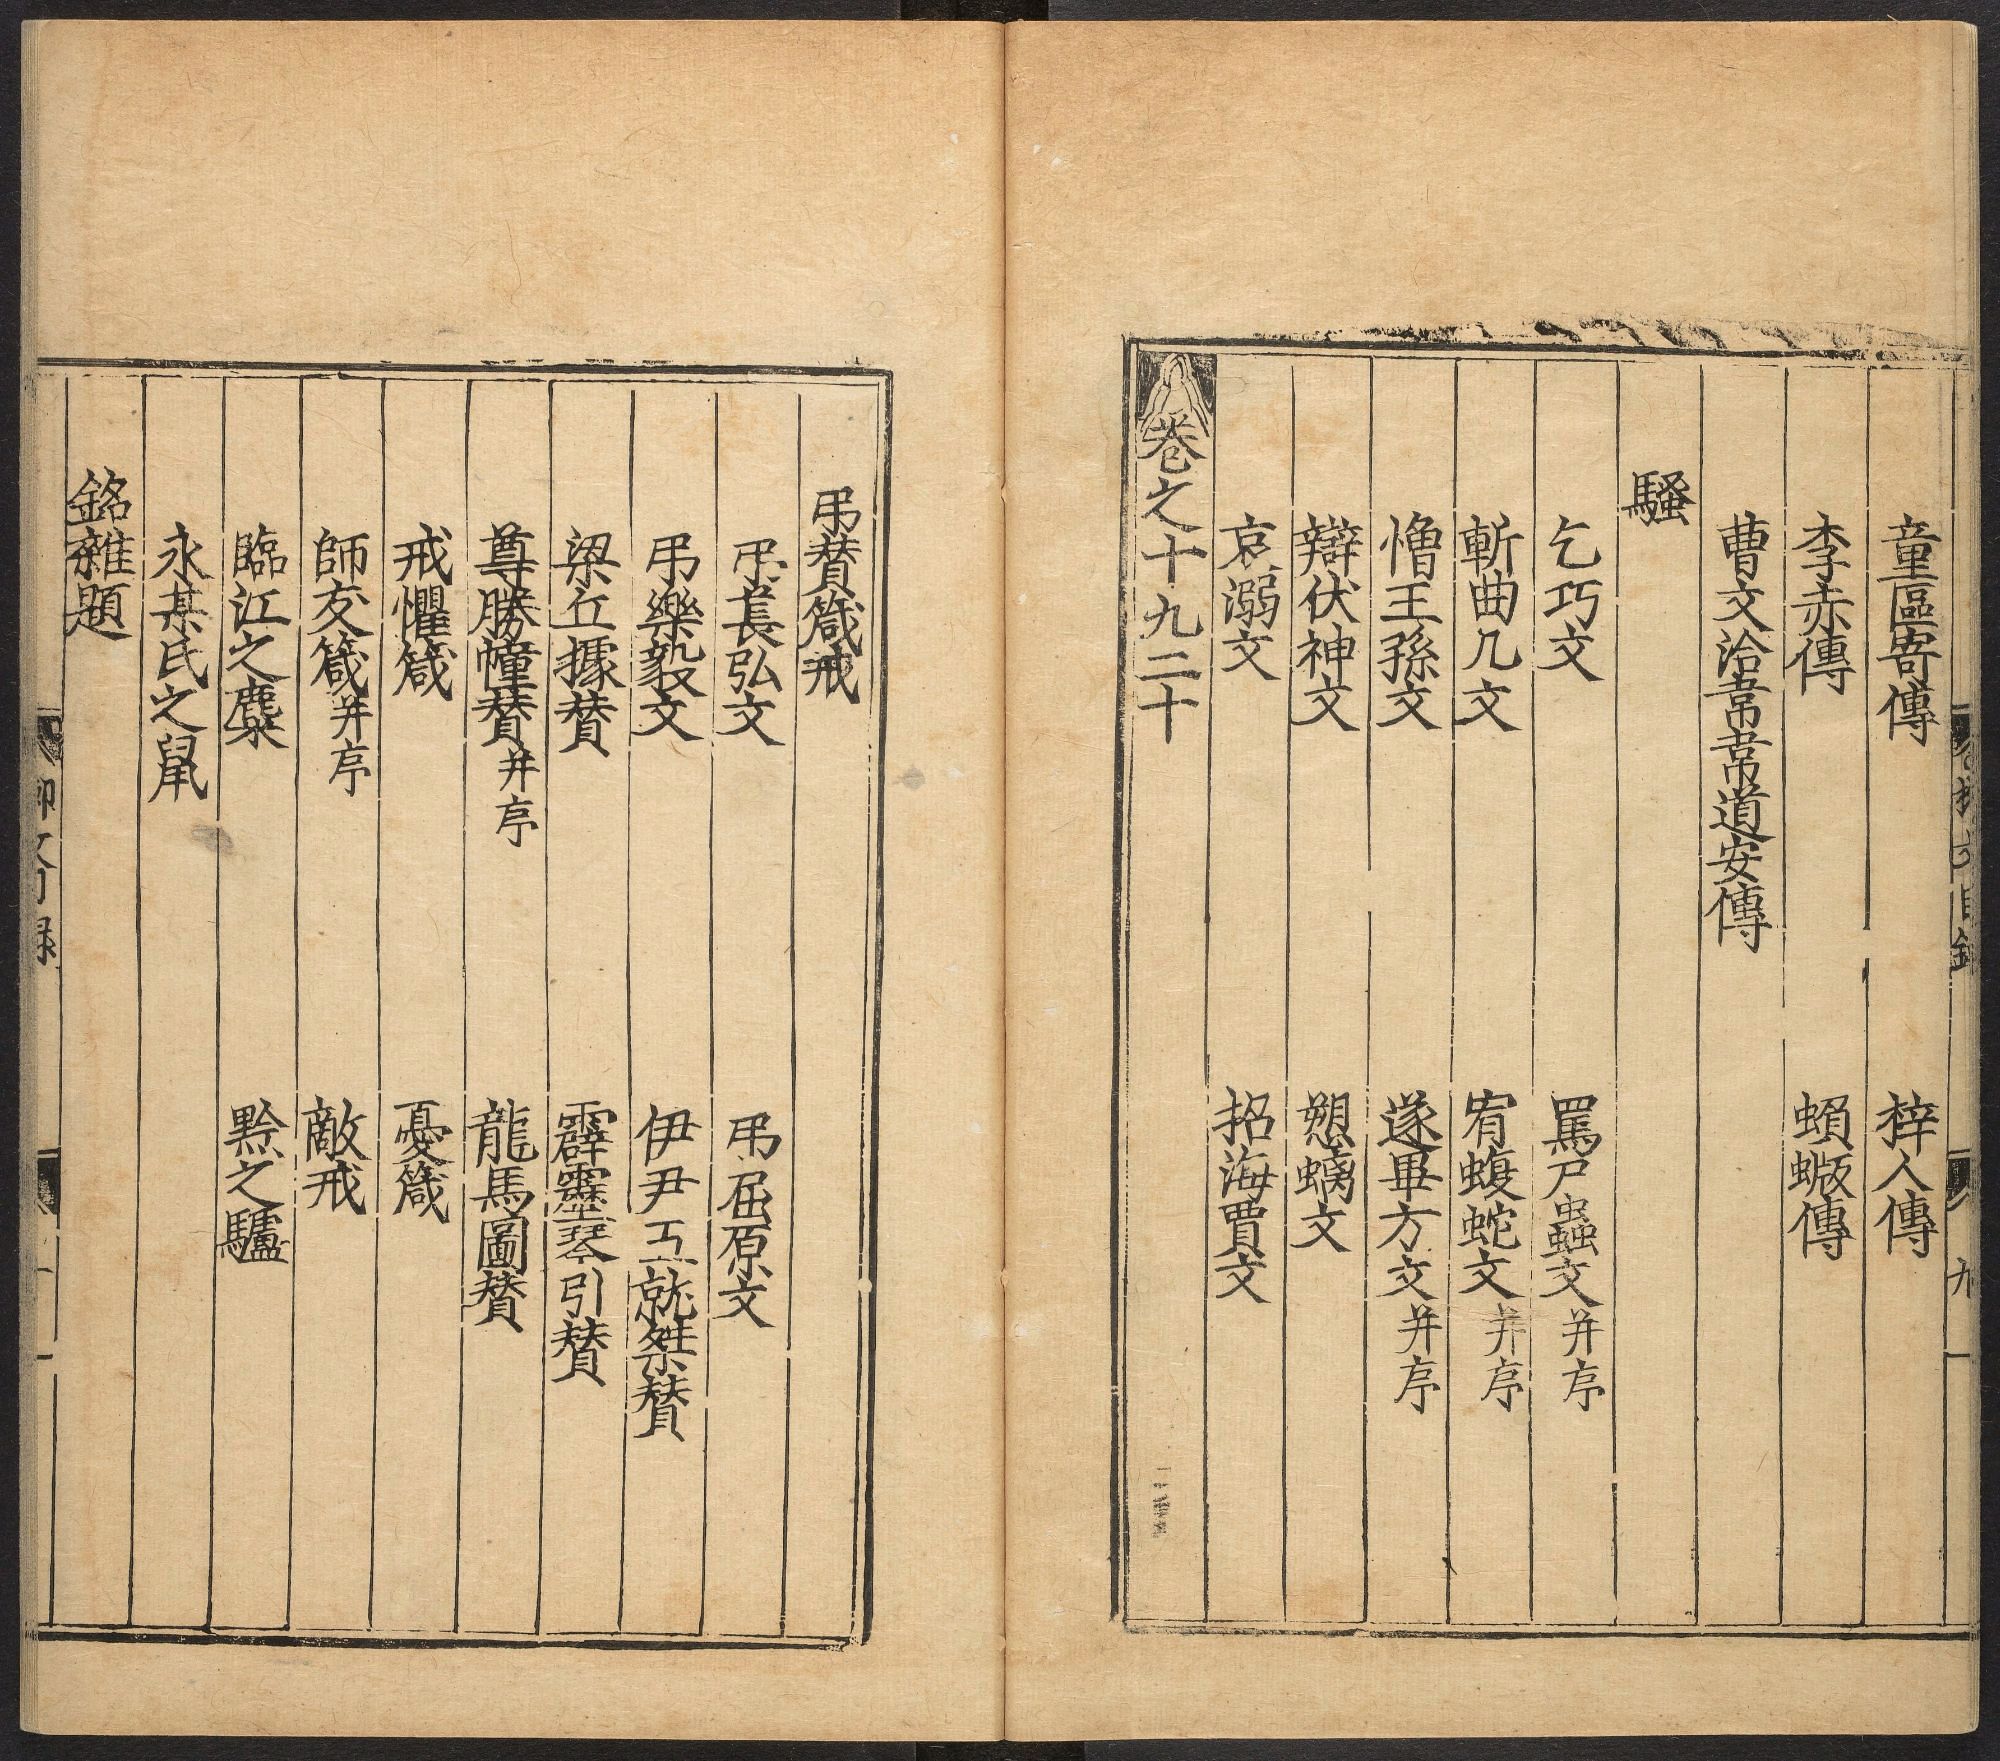 童區寄傳 梓人傳
李赤傳 蝜蝂傳
曹文洽韋道安傳
騷
乞巧文 罵尸蟲文并序
斬曲几文 宥蝮蛇文并序
憎王孫文 逐畢方文并序
辯伏神文 愬螭文
哀溺文 招海賈文
卷之十九二十
弔贊箴戒
弔萇弘文 弔屈原文
弔樂毅文 伊尹五就桀贊
梁丘據贊 霹靂琴引贊
尊勝幢贊并序 龍馬圖贊
戒懼箴 憂箴
師友箴并序 敵戒
臨江之麋 黔之驢
永某氏之鼠
銘雜題